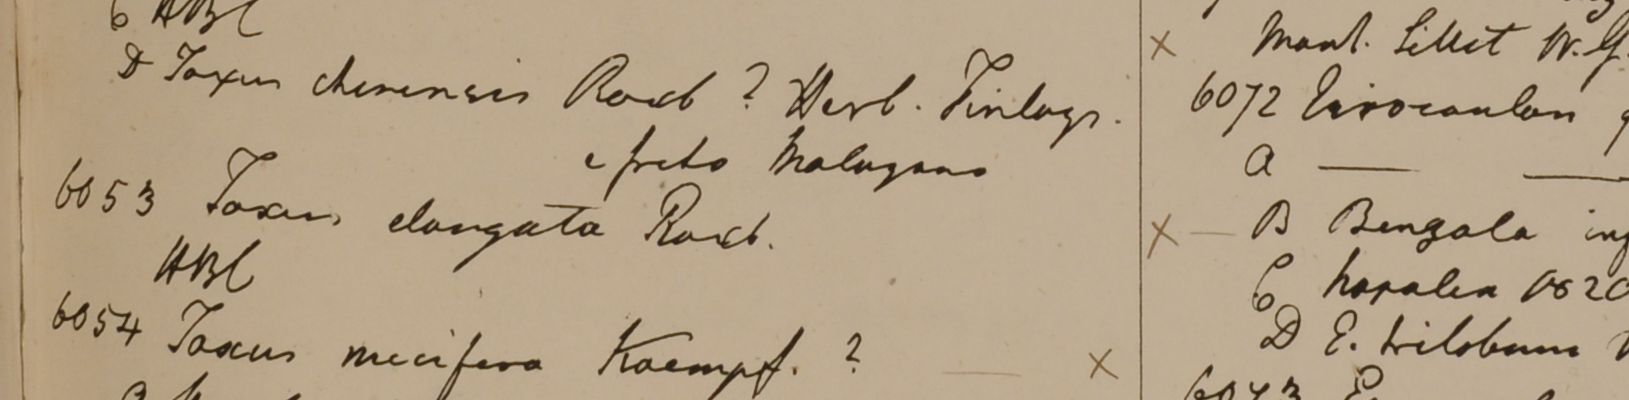 C HBC
D Taxus chinensis Roxb? Herb. Finlays.
e freto Malayano
6053 Taxus elongata Roxb.
HBC
6054 Taxus nucifera Kaempf. ?
Mont. Sillet W. G.
6072 Eriocaulon
a
B Bengala inf
C Napalia 1820
D E. trilobum
6073 E